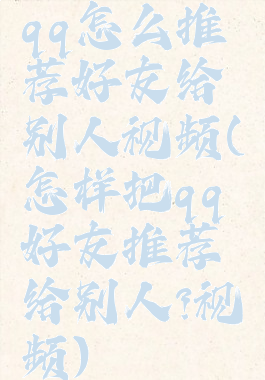 qq怎么推
荐好友给
别人视频(
怎样把qq
好友推荐
给别人?视
频)